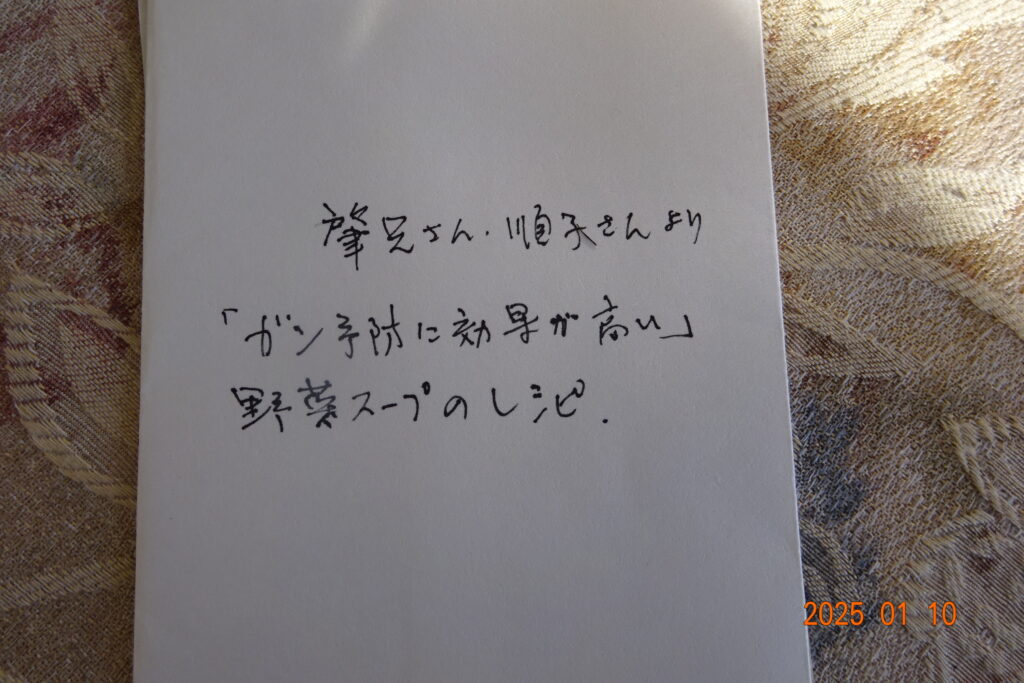 肇兄さん、順子さんより
「ガン予防に効果が高い」
野菜スープのレシピ.
2025 01 10